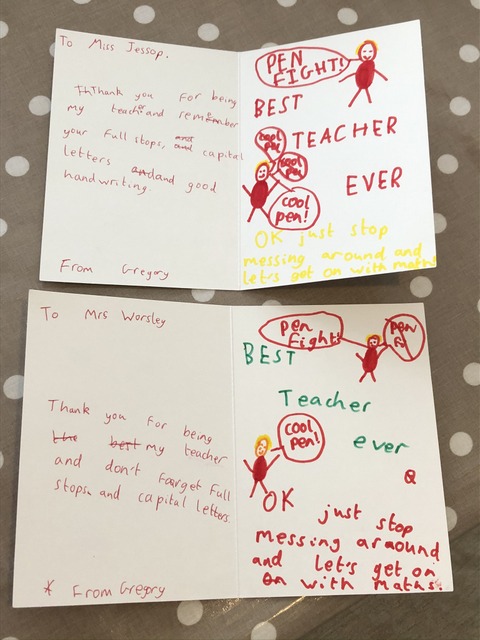 To Miss Jessop.
Thank you for being
my teacher and remember
your full stops, and capital
letters and good
handwriting.
From Gregory
PEN
FIGHT!
BEST
cool
pen
TEACHER
cool
pen
EVER
cool
pen!
OK just stop
messing around and
let's get on with maths
To Mrs Worsley
Thank you for being
the best my teacher
and don't forget full
stops and capital letters.
From Gregory
Pen
fight!
pen
BEST
Teacher
ever
cool
pen!
OK just stop
messing araound
and let's get on
on with maths.